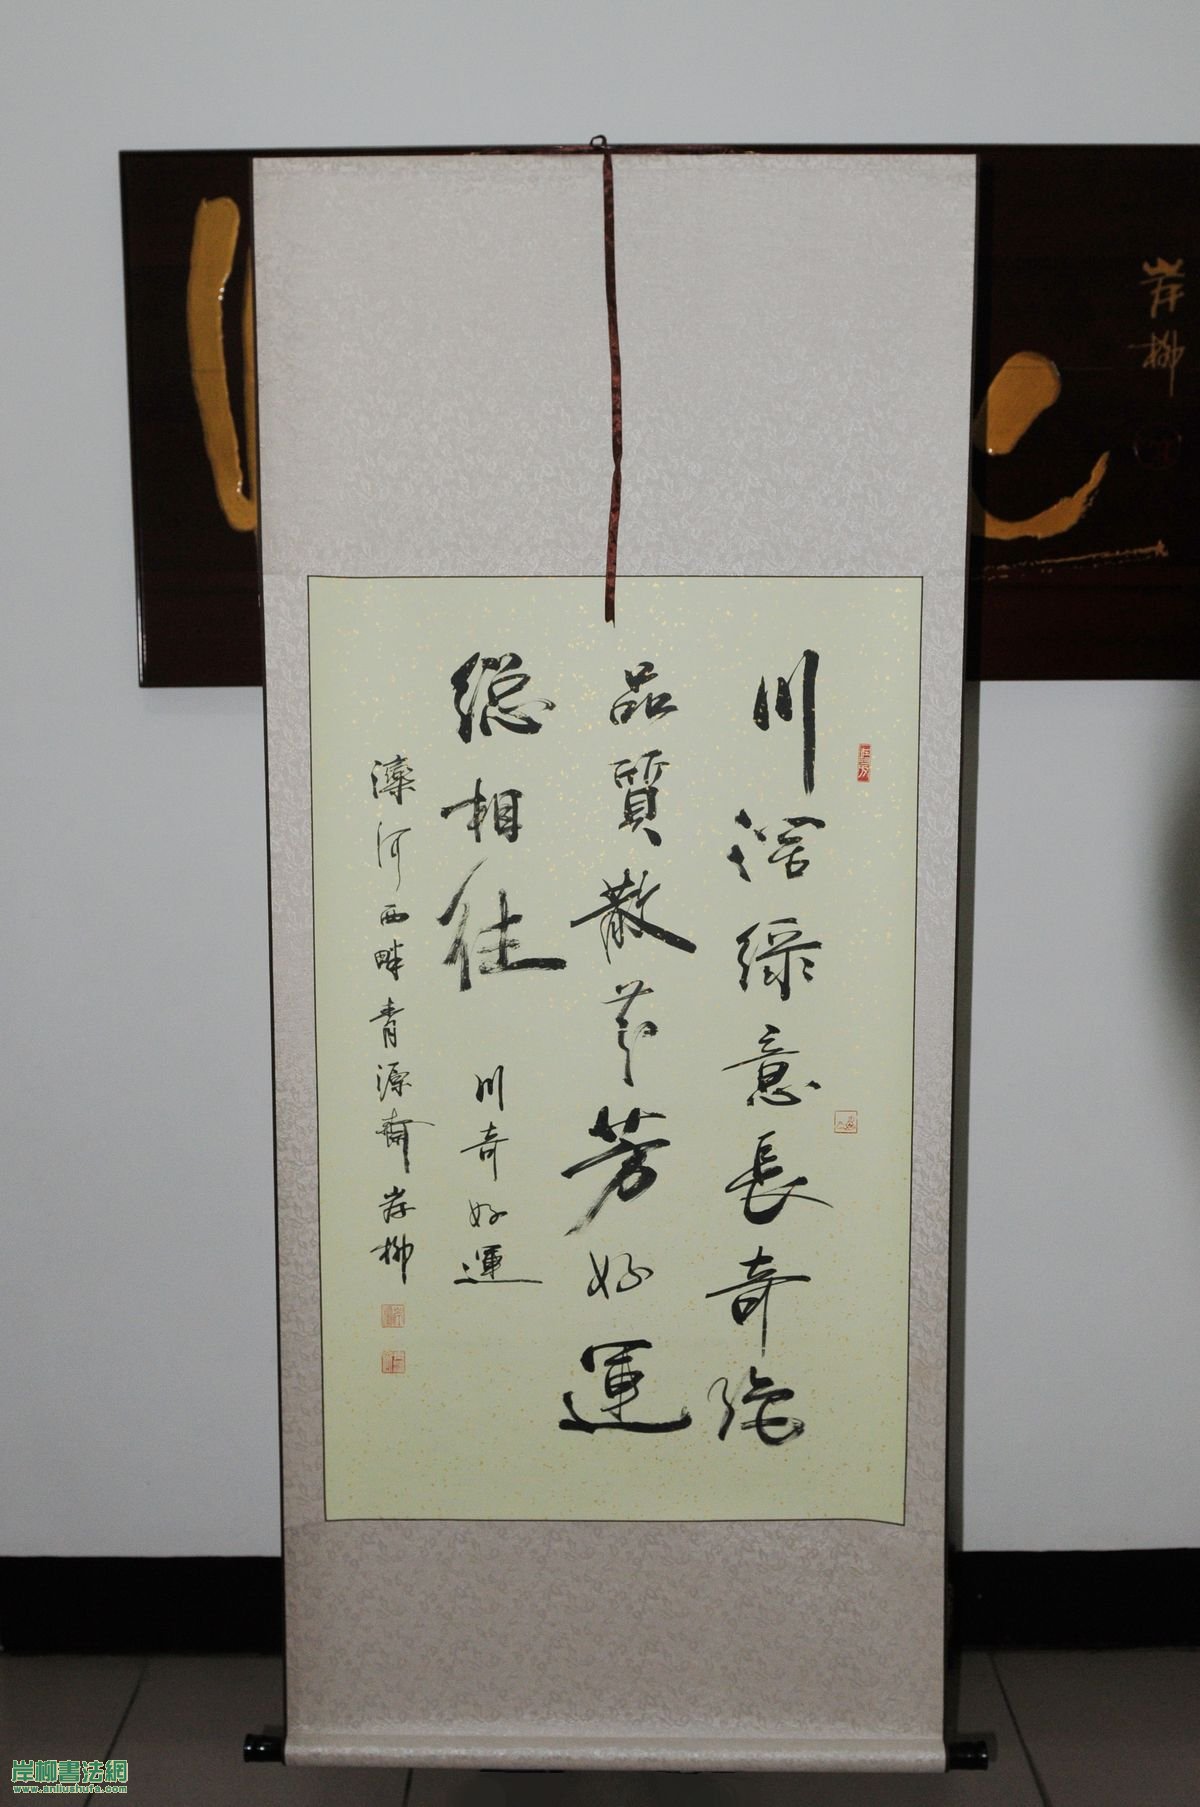 川深綠意長奇絕
品質散芬芳好運
總相往
川奇好運
灤河西畔青源齋岸柳
岸柳
岸柳書法網
www.anliushufa.com